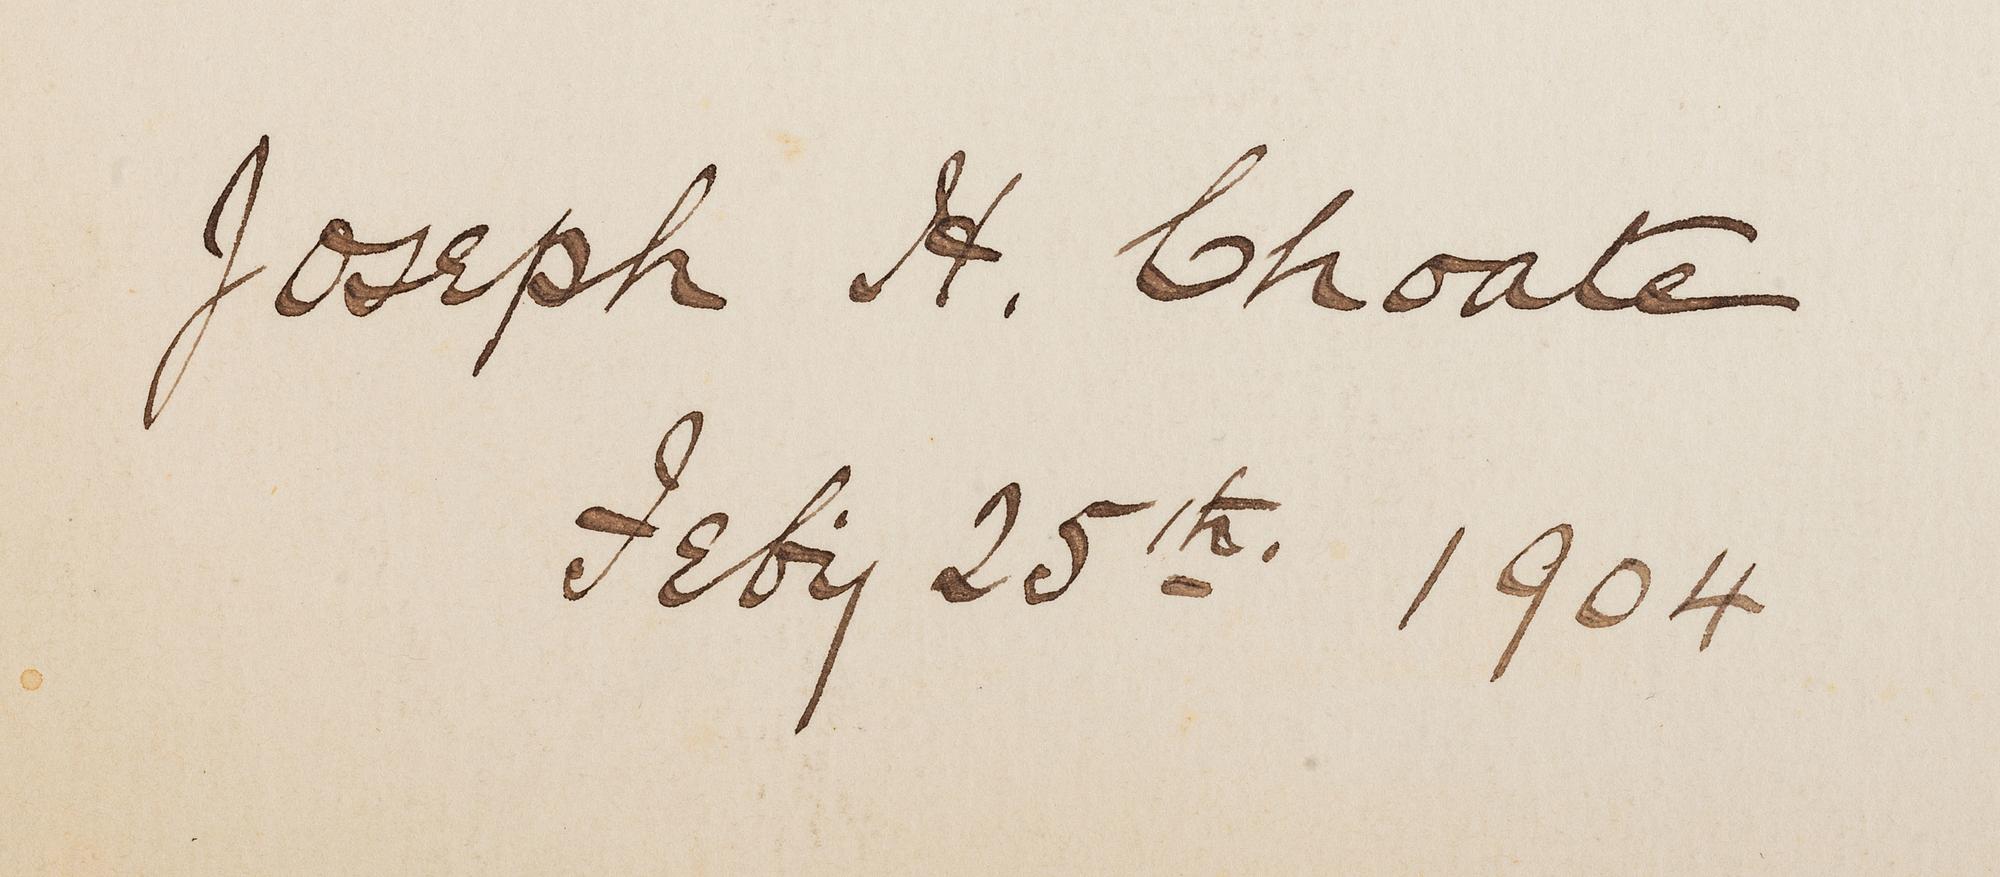 Joseph H. Choate
Feby 25th. 1904